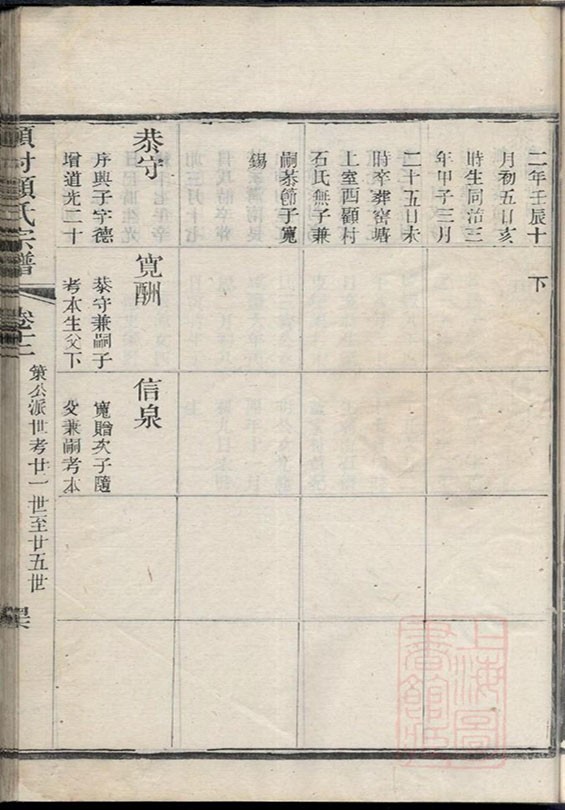 二年壬辰十
月初五日亥
時生同治三
年甲子三月
二十五日未
時卒葬窑塘
上室西顧村
石氏無子兼
嗣恭節子寬
錫
下
恭守
序興子字德
增道光二十
寬酬
恭守兼嗣子
考本生父下
信泉
寬贈次子隨
父兼嗣考本
顧氏宗譜
卷十二
策公派世考廿一世至廿五世
上海圖
書館藏